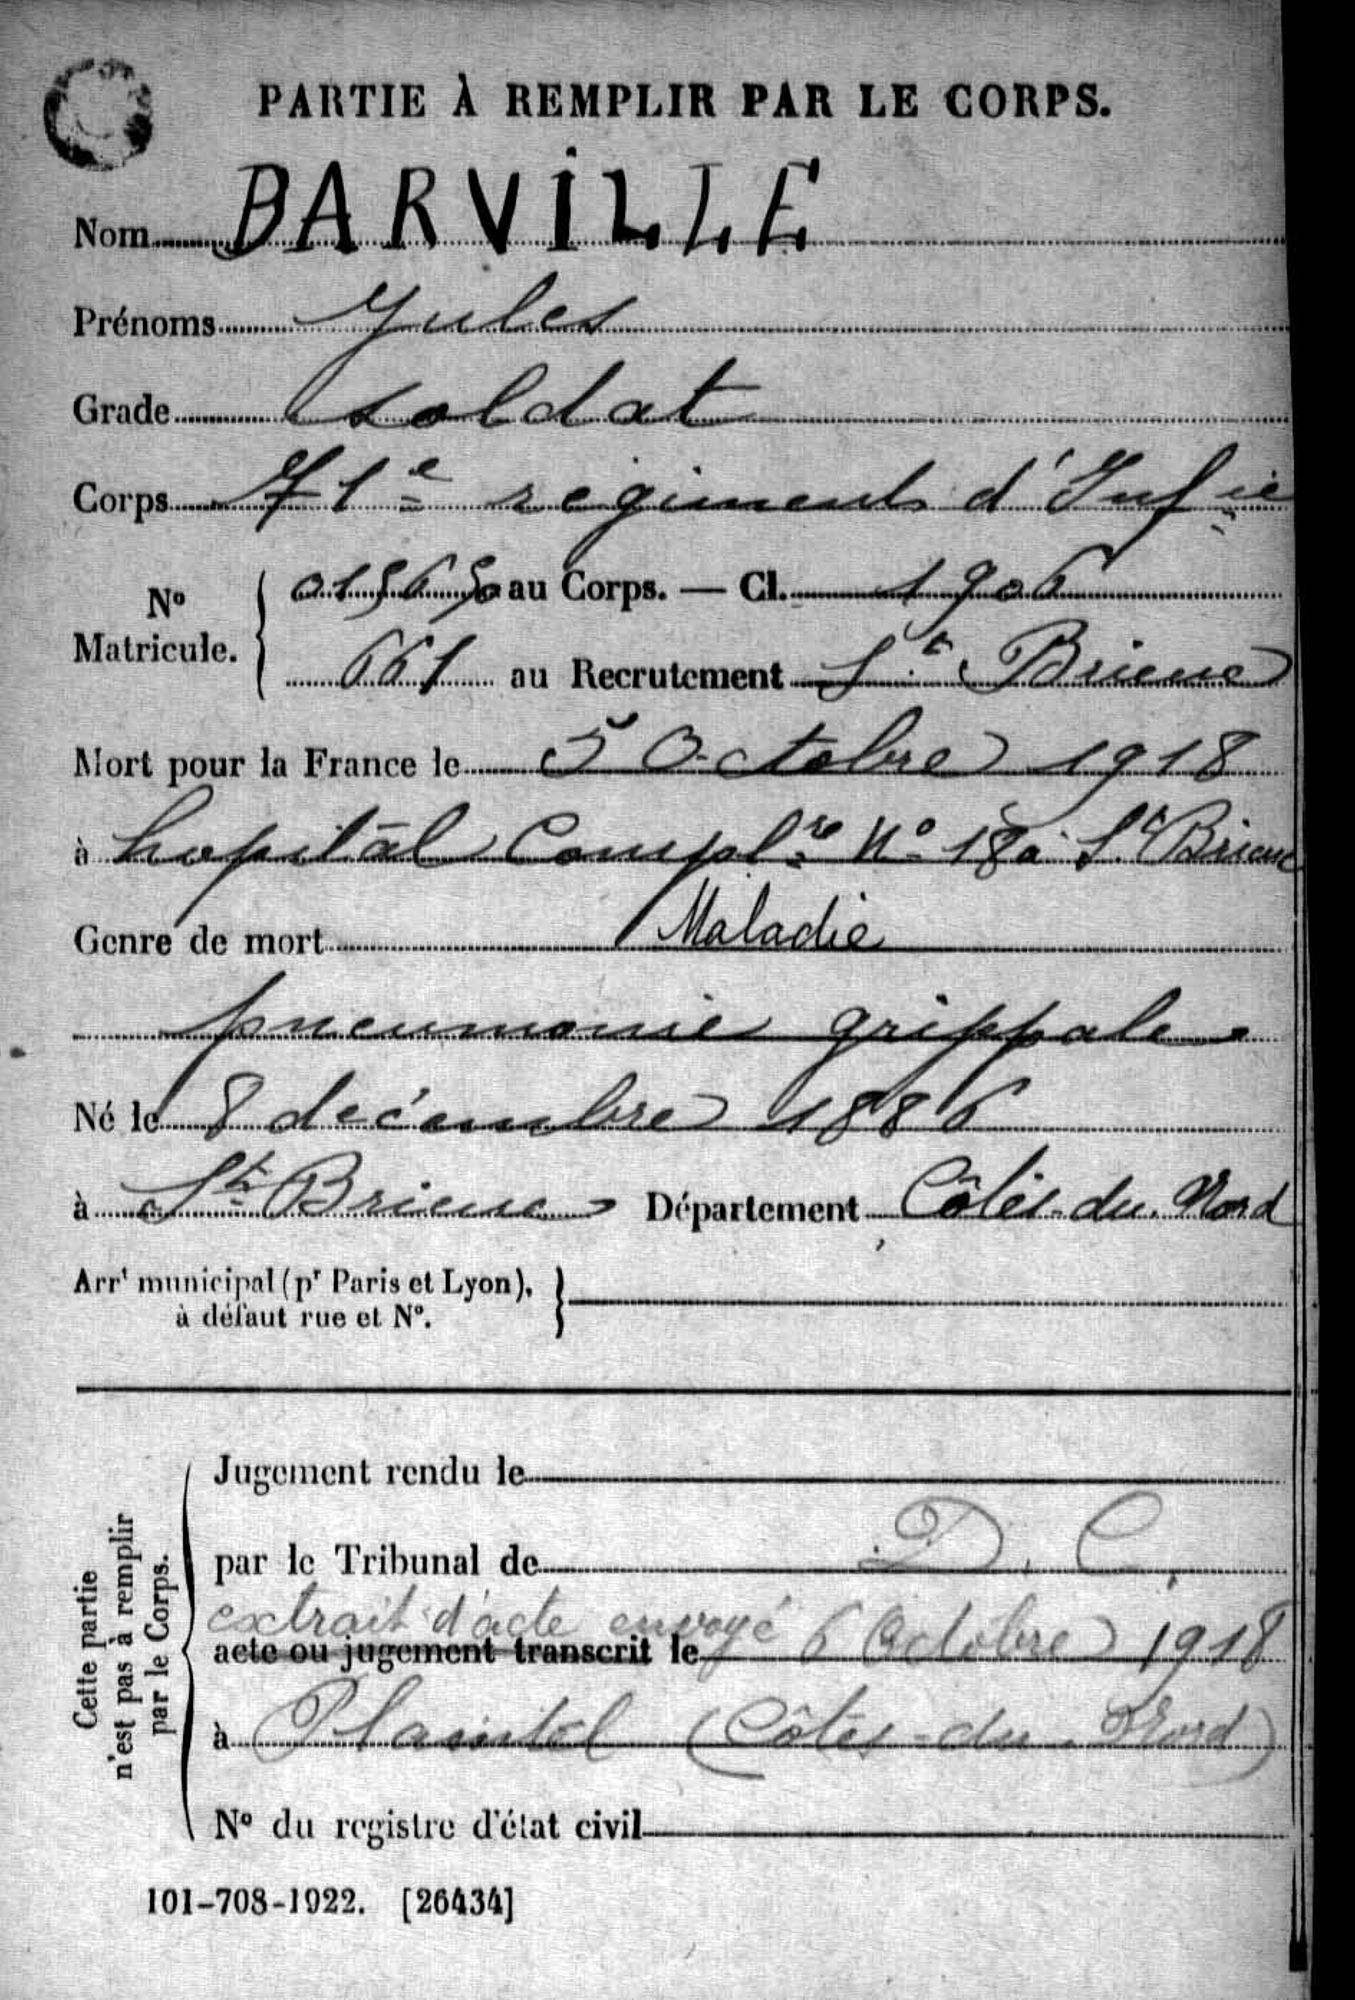 PARTIE À REMPLIR PAR LE CORPS.
Nom BARVILLE
Prénoms Jules
Grade Soldat
Corps 71e régiment d'Infie
No Matricule. 015650 au Corps. — Cl. 1906
661 au Recrutement St Brieuc
Mort pour la France le 5 Octobre 1918
à hopital Complre No 18 à St Brieuc
Genre de mort Maladie
pneumonie grippale
Né le 8 décembre 1886
à St Brieuc Département Côtes-du-Nord
Arrt municipal (pr Paris et Lyon),
à défaut rue et No.
Cette partie
n'est pas à remplir
par le Corps.
Jugement rendu le
par le Tribunal de D. C.
extrait d'acte envoyé
acte ou jugement transcrit le 6 Octobre 1918
à Plaintel (Côtes-du-Nord)
No du registre d'état civil
101-708-1922. [26434]